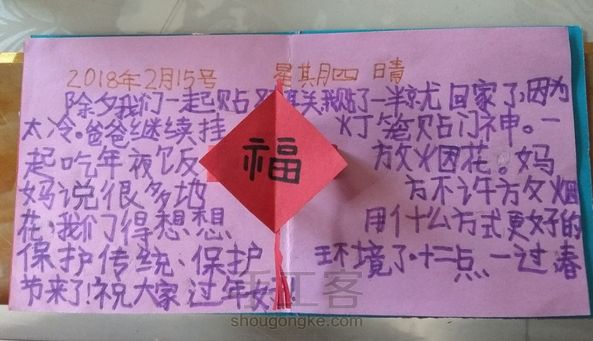 2018年2月15号 星期四 晴
除夕我们一起贴对联关我贴了一半就回家了,因为
太冷。爸爸继续挂灯笼贴门神。一
起吃年夜饭 放烟花。妈
妈说很多地方不许放烟
花,我们得想想用什么方式更好的
保护传统、保护环境了。十二点一过春
节来了!祝大家过年好!
福
手工客
shougongke.com